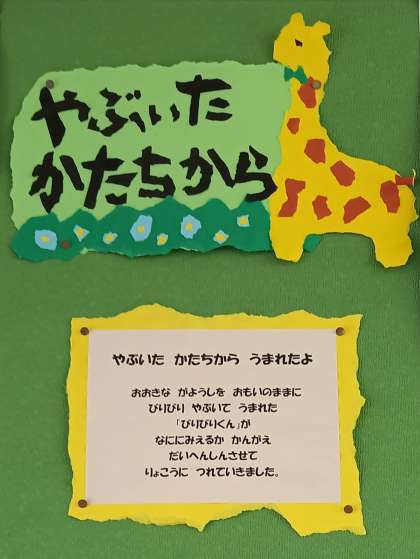 やぶいた
かたちから
やぶいた かたちから うまれたよ
おおきな がようしを おもいのままに
びりびり やぶいて うまれた
「びりびりくん」が
なににみえるか かんがえ
だいへんしんさせて
りょこうに つれていきました。